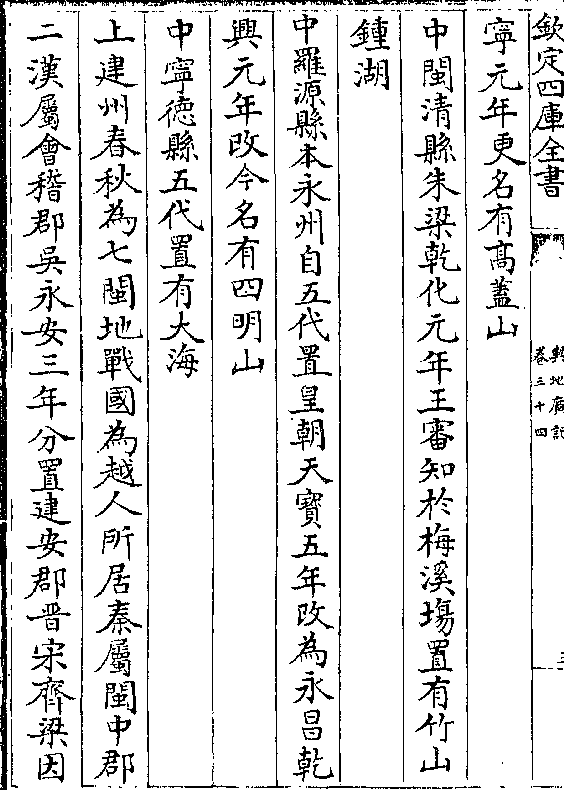 欽定四庫全書
輿地廣記
卷三十四
寧元年更名有髙蓋山
中閩清縣朱梁乾化元年王審知於梅溪塲置有竹山
鍾湖
中羅源縣本永州自五代置皇朝天寶五年改為永昌乾
興元年改今名有四明山
中寧德縣五代置有大海
上建州春秋為七閩地戰國為越人所居秦屬閩中郡
二漢屬會稽郡吳永安三年分置建安郡晉宋齊梁因